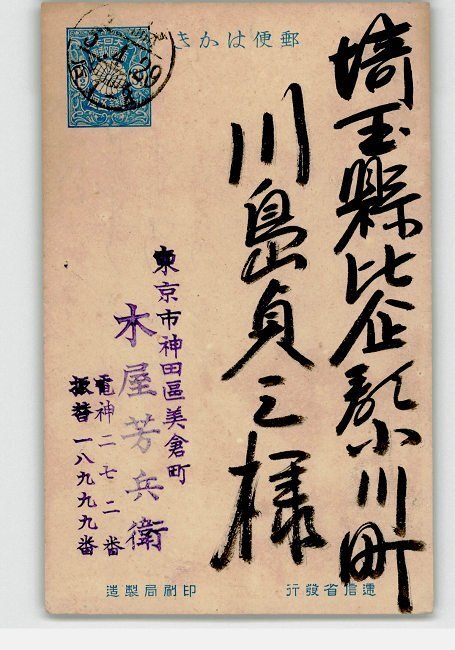 郵便はかき
埼玉縣比企郡小川町
川島貞三様
東京市神田區美倉町
木屋芳兵衛
電神二七二番
振替一八九九九番
遞信省發行
印刷局製造